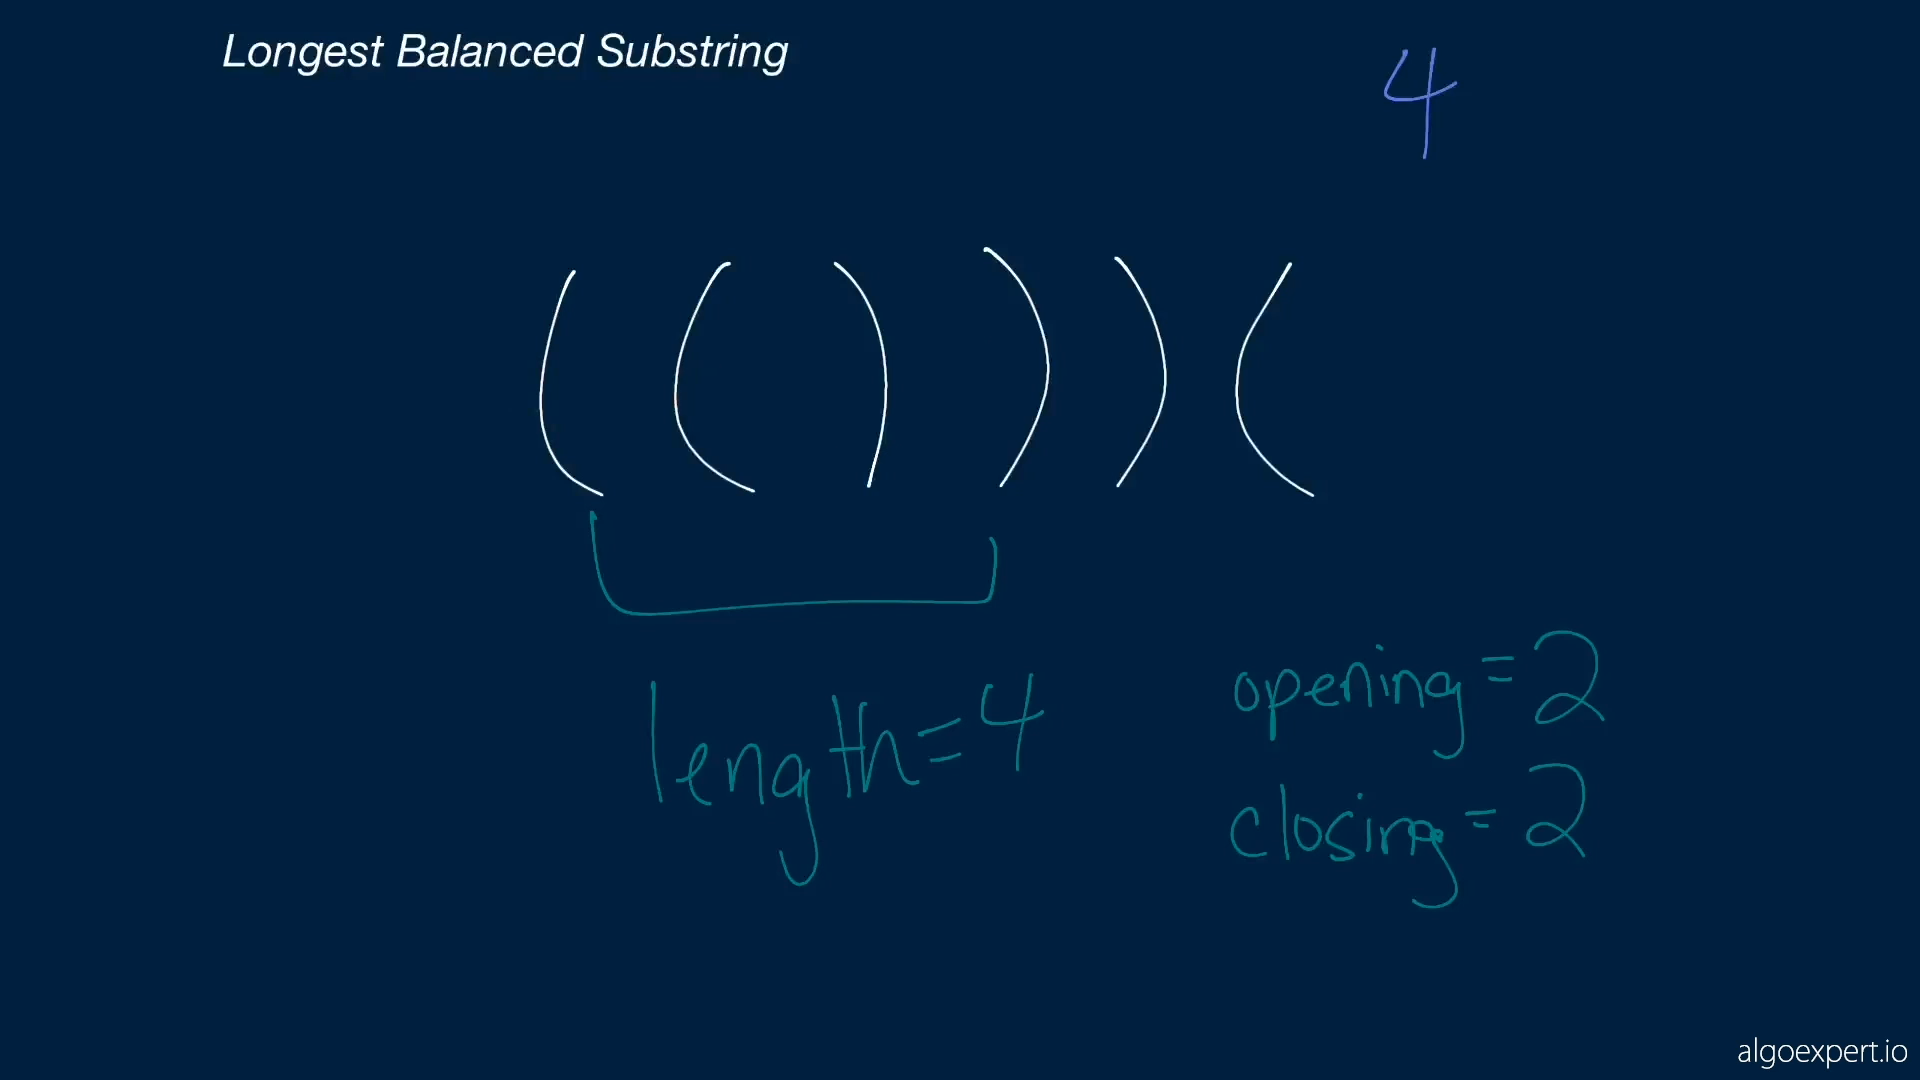 Longest Balanced Substring
4
( ( ) ) ) (
length=4
opening=2
closing=2
algoexpert.io